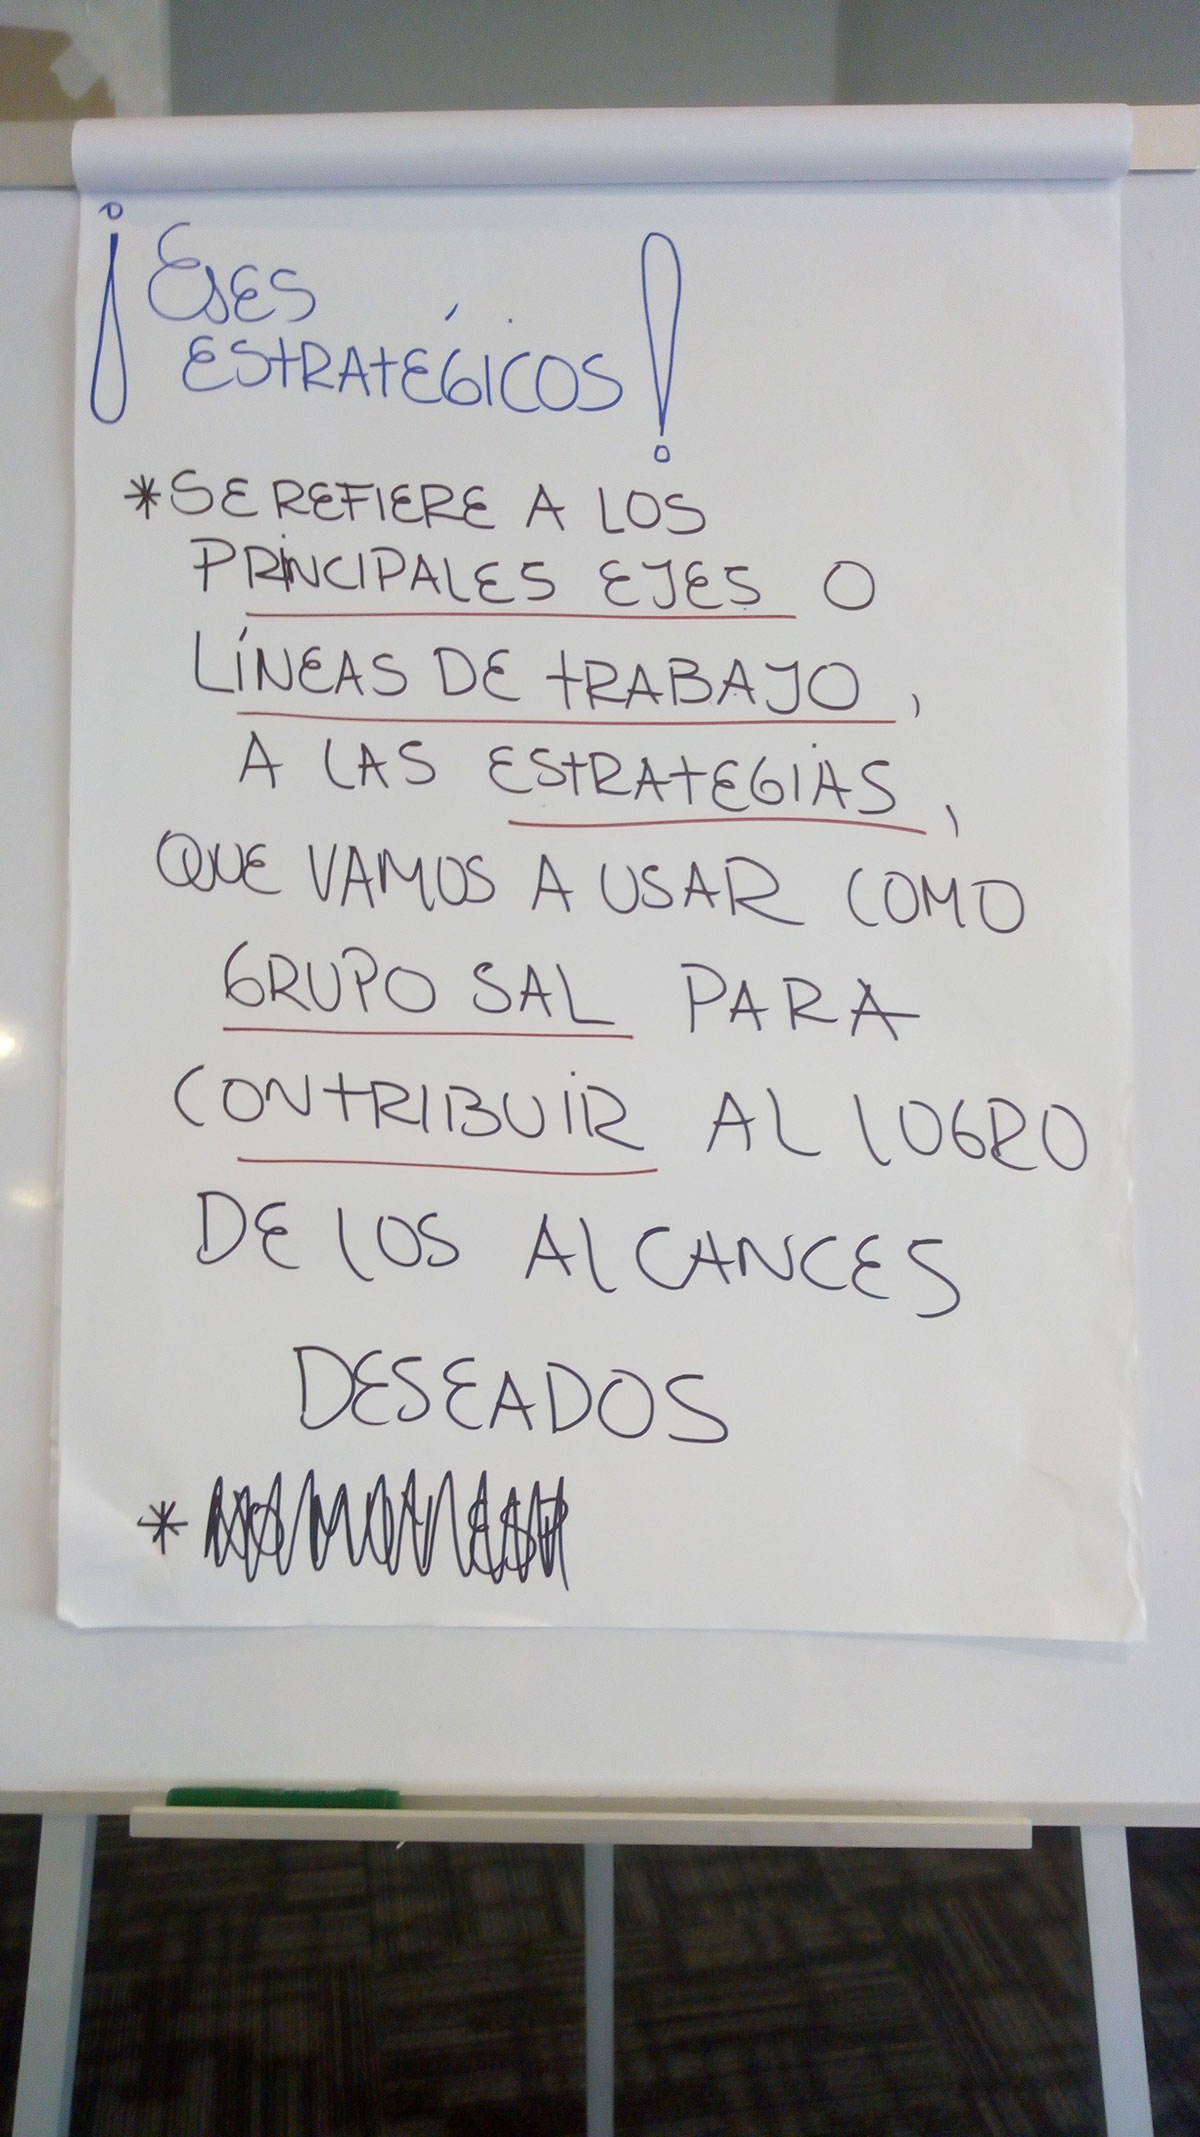 ¡EJES
ESTRATÉGICOS!
*SE REFIERE A LOS
PRINCIPALES EJES O
LÍNEAS DE TRABAJO,
A LAS ESTRATEGIAS,
QUE VAMOS A USAR COMO
GRUPO SAL PARA
CONTRIBUIR AL LOGRO
DE LOS ALCANCES
DESEADOS
*